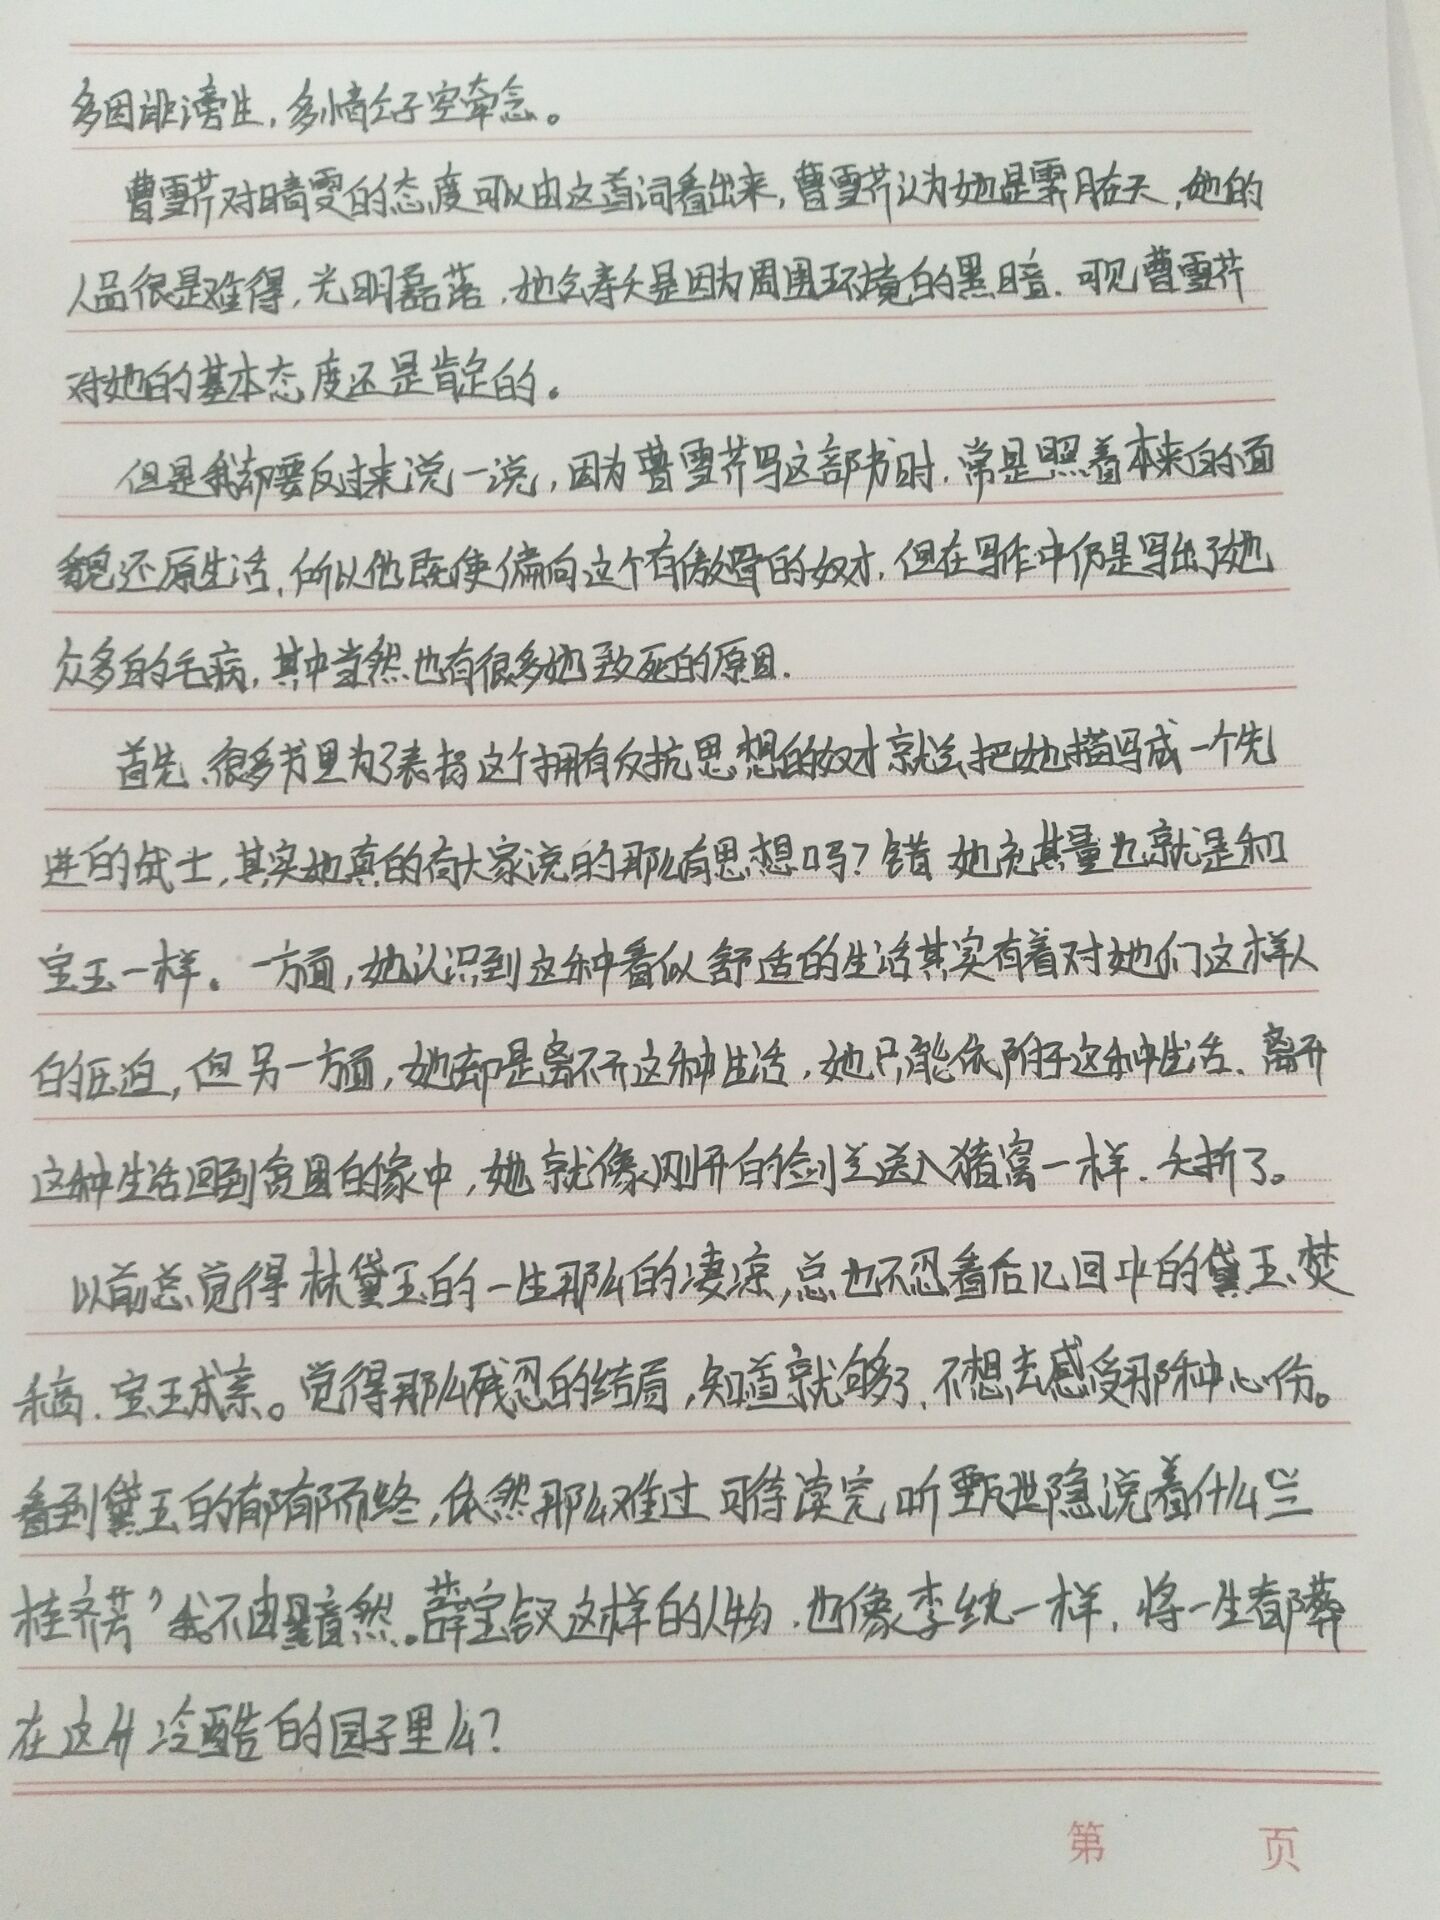 多因诽谤生，多情公子空牵念。
曹雪芹对晴雯的态度可以由这首词看出来，曹雪芹认为她是霁月在天，她的
人品很是难得，光明磊落，她会寿夭是因为周围环境的黑暗．可见曹雪芹
对她的基本态度还是肯定的。
但是我却要反过来说一说，因为曹雪芹写这部书时．常是照着本来的面
貌还原生活，所以他既使偏向这个有傲骨的奴才，但在写作中仍是写出了她
众多的毛病，其中当然也有很多她致死的原因．
首先、很多书里为了表扬这个拥有反抗思想的奴才就会把她描写成一个先
进的战士，其实她真的有大家说的那么有思想吗？错 她充其量也就是和
宝玉一样。一方面，她认识到这种看似舒适的生活其实有着对她们这样人
的压迫，但另一方面，她却是离不开这种生活，她只能依附于这种生活、离开
这种生活回到贫困的家中，她就像刚开的剑兰送入猪窝一样．夭折了。
以前总觉得林黛玉的一生那么的凄凉，总也不忍看后几回中的黛玉焚
稿．宝玉成亲。觉得那么残忍的结局，知道就够了，不想去感受那种心伤。
看到黛玉的郁郁而终，依然那么难过 可待读完 听甄世隐说着什么“兰
桂齐芳”我不由暗然。薛宝钗这样的人物．也像李纨一样，将一生都葬
在这 冷酷的园子里么？
第 页